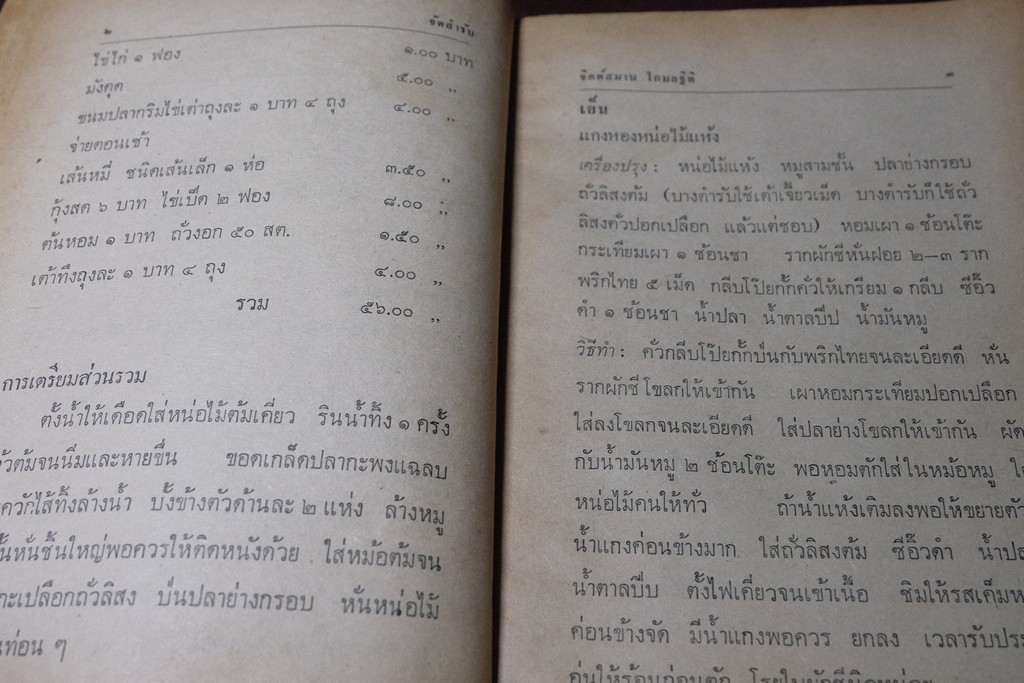 ๒ จัดสำรับ
ไข่ไก่ ๑ ฟอง ๑.๐๐ บาท
มังคุด ๕.๐๐ ,,
ขนมปลากริมไข่เต่าถุงละ ๑ บาท ๔ ถุง ๔.๐๐ ,,
จ่ายตอนเช้า
เส้นหมี่ ชนิดเส้นเล็ก ๑ ห่อ ๓.๕๐ ,,
กุ้งสด ๖ บาท ไข่เป็ด ๒ ฟอง ๘.๐๐ ,,
ต้นหอม ๑ บาท ถั่วงอก ๕๐ สต. ๑.๕๐ ,,
เต้าทึงถุงละ ๑ บาท ๔ ถุง ๔.๐๐ ,,
รวม ๕๖.๐๐ ,,
การเตรียมส่วนรวม
ตั้งน้ำให้เดือดใส่หน่อไม้ต้มเคี่ยว รินน้ำทิ้ง ๑ ครั้ง
ต้มจนนิ่มและหายขื่น ขอดเกล็ดปลากะพงแฉลบ
ควักไส้ทิ้งล้างน้ำ บั้งข้างตัวด้านละ ๒ แห่ง ล้างหมู
หั่นชิ้นใหญ่พอควรให้ติดหนังด้วย ใส่หม้อต้มจน
กะเปลือกถั่วลิสง ป่นปลาย่างกรอบ หั่นหน่อไม้
ท่อน ๆ
จิตต์สมาน โกมลฐิติ ๓
เย็น
แกงหองหน่อไม้แห้ง
เครื่องปรุง : หน่อไม้แห้ง หมูสามชั้น ปลาย่างกรอบ
ถั่วลิสงต้ม (บางตำรับใช้เต้าเจี้ยวเม็ด บางตำรับก็ใช้ถั่ว
ลิสงคั่วปอกเปลือก แล้วแต่ชอบ) หอมเผา ๑ ช้อนโต๊ะ
กระเทียมเผา ๑ ช้อนชา รากผักชีหั่นฝอย ๒—๓ ราก
พริกไทย ๕ เม็ด กลีบโป๊ยกั๊กคั่วให้เกรียม ๑ กลีบ ซีอิ๊ว
ดำ ๑ ช้อนชา น้ำปลา น้ำตาลปีป น้ำมันหมู
วิธีทำ : คั่วกลีบโป๊ยกั๊กป่นกับพริกไทยจนละเอียดดี หั่น
รากผักชีโขลกให้เข้ากัน เผาหอมกระเทียมปอกเปลือก
ใส่ลงโขลกจนละเอียดดี ใส่ปลาย่างโขลกให้เข้ากัน ผัด
กับน้ำมันหมู ๒ ช้อนโต๊ะ พอหอมตักใส่ในหม้อหมู
หน่อไม้คนให้ทั่ว ถ้าน้ำแห้งเติมลงพอให้ขยายตัว
น้ำแกงค่อนข้างมาก ใส่ถั่วลิสงต้ม ซีอิ๊วดำ
น้ำตาลปีบ ตั้งไฟเคี่ยวจนเข้าเนื้อ ชิมให้รสเค็ม
ค่อนข้างจัด มีน้ำแกงพอควร ยกลง เวลา
อุ่นให้ร้อนก่อนตัก